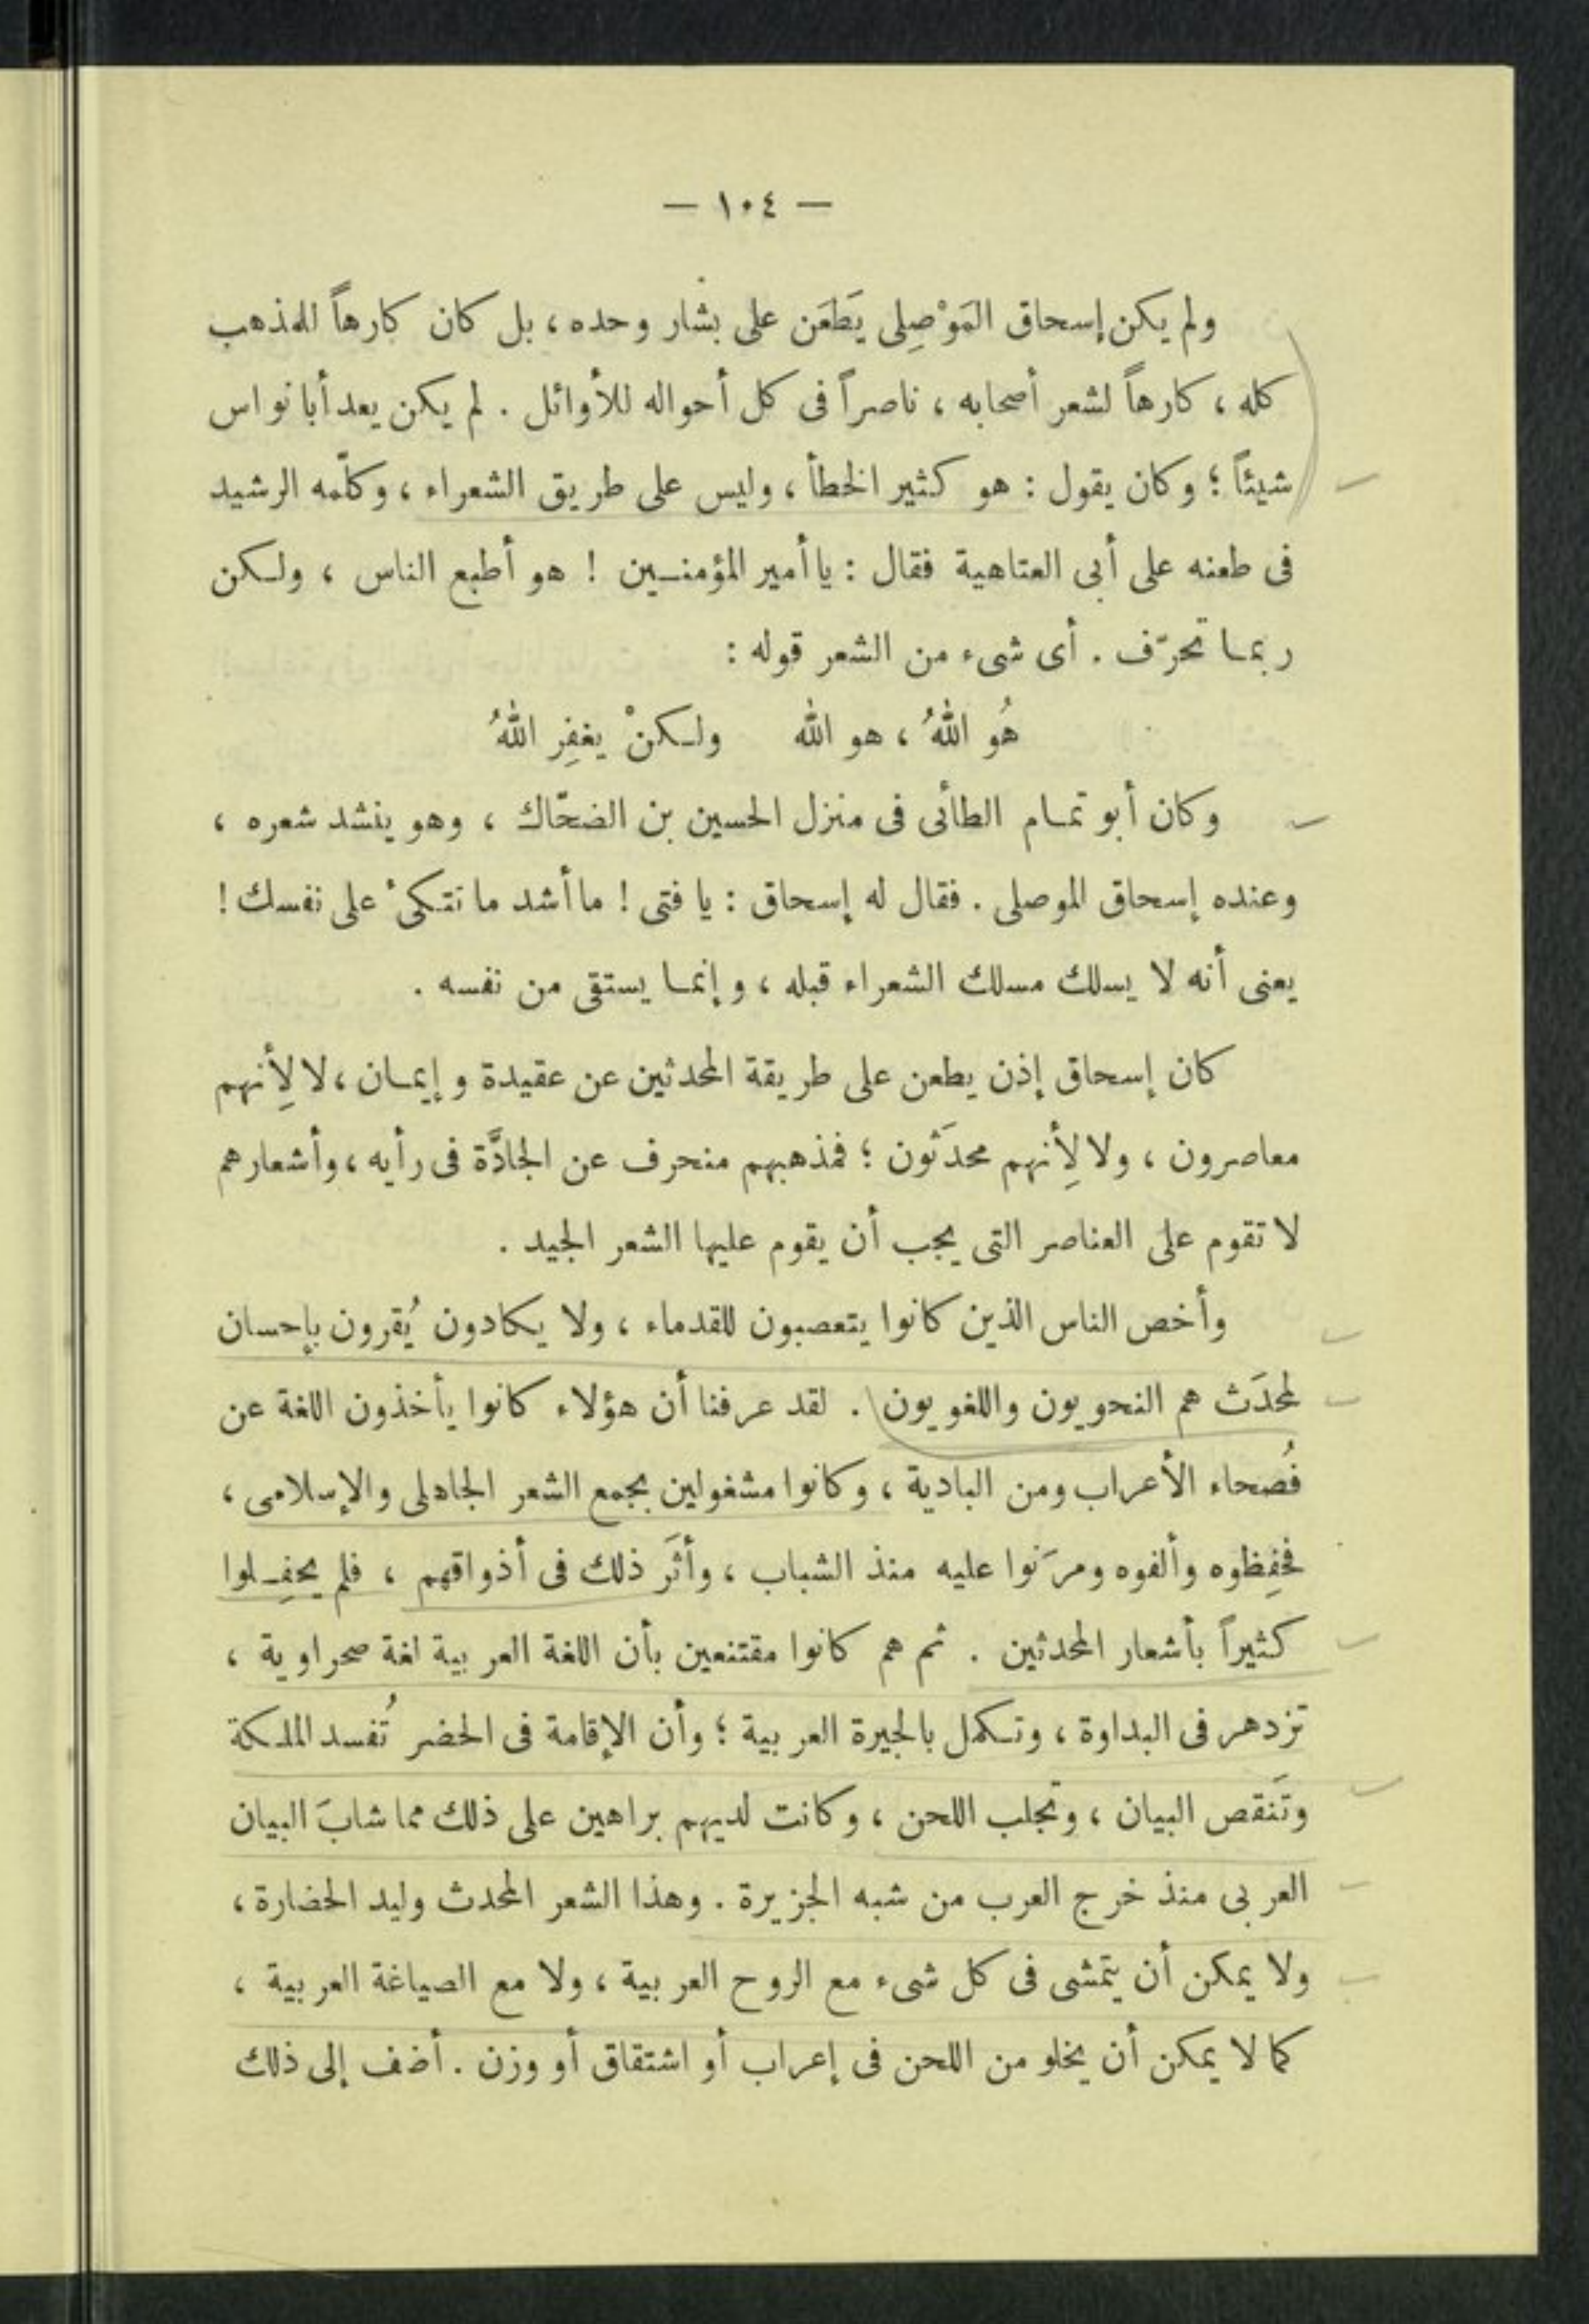 — ١٠٤ —
ولم يكن إسحاق المَوْصِلى يَطعَن على بشار وحده ، بل كان كارهاً للمذهب
كله ، كارهاً لشعر أصحابه ، ناصراً فى كل أحواله للأوائل . لم يكن يعد أبا نواس
شيئاً ؛ وكان يقول : هو كثير الخطأ ، وليس على طريق الشعراء ، وكلّمه الرشيد
فى طعنه على أبى العتاهية فقال : يا أمير المؤمنـين ! هو أطبع الناس ، ولـكن
ربمـا تحرّف . أى شىء من الشعر قوله :
هُو اللهُ ، هو الله ولـكنْ يغفِر اللهُ
وكان أبو تمـام الطائى فى منزل الحسين بن الضحّاك ، وهو ينشد شعره ،
وعنده إسحاق الموصلى . فقال له إسحاق : يا فتى ! ما أشد ما نتـكىُٔ على نفسك !
يعنى أنه لا يسلك مسلك الشعراء قبله ، وإنمـا يستقى من نفسه .
كان إسحاق إذن يطعن على طريقة المحدثين عن عقيدة وإيمـان ، لا لِأنهم
معاصرون ، ولا لِأنهم محدَثون ؛ فمذهبهم منحرف عن الجادَّة فى رأيه ، وأشعارهم
لا تقوم على العناصر التى يجب أن يقوم عليها الشعر الجيد .
وأخص الناس الذين كانوا يتعصبون للقدماء ، ولا يكادون يُقرون بإحسان
لمحدَث هم النحويون واللغويون . لقد عرفنا أن هؤلاء كانوا يأخذون اللغة عن
فُصحاء الأعراب ومن البادية ، وكانوا مشغولين بجمع الشعر الجاهلى والإسلامى ،
فحَفِظوه وألفوه ومرَنوا عليه منذ الشباب ، وأثَر ذلك فى أذواقهم ، فلم يحفِـلوا
كثيراً بأشعار المحدثين . ثم هم كانوا مقتنعين بأن اللغة العربية لغة صحراوية ،
تزدهر فى البداوة ، وتـكمل بالجيرة العربية ؛ وأن الإقامة فى الحضر تُفسد الملـكة
وتَنقص البيان ، وتجلب اللحن ، وكانت لديهم براهين على ذلك مما شابَ البيان
العربى منذ خرج العرب من شبه الجزيرة . وهذا الشعر المحدث وليد الحضارة ،
ولا يمكن أن يتمشى فى كل شىء مع الروح العربية ، ولا مع الصياغة العربية ،
كما لا يمكن أن يخلو من اللحن فى إعراب أو اشتقاق أو وزن . أضف إلى ذلك